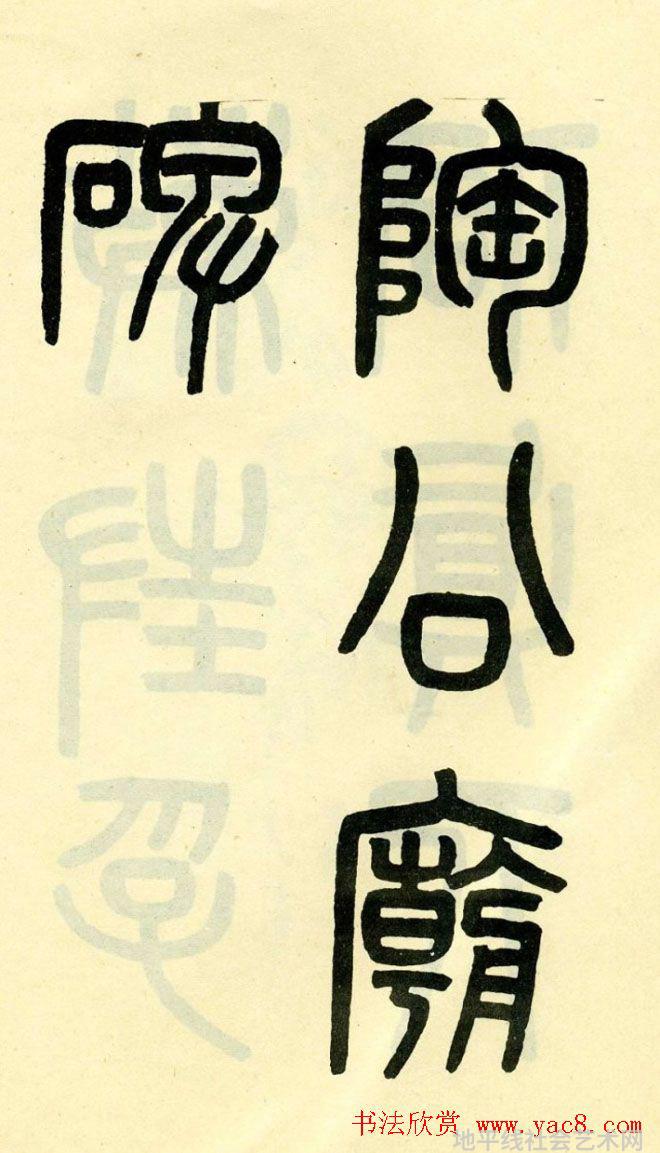 陶公廟
碑
书法欣赏 www.yac8.com
地平线社会艺术网